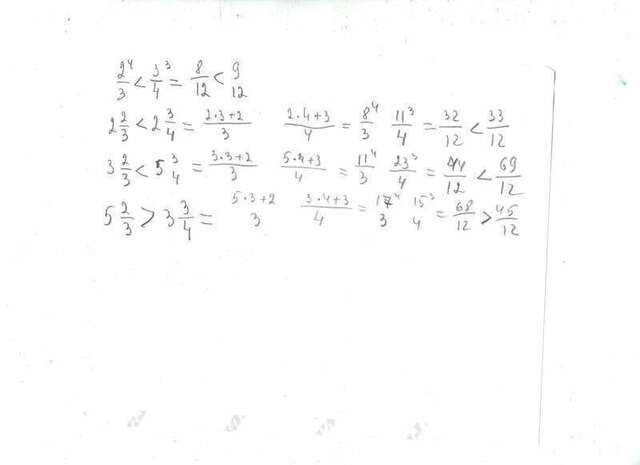 2⁴/3 < 3³/4 = 8/12 < 9/12
2 2/3 < 2 3/4 = (2·3+2)/3 (2·4+3)/4 = 8⁴/3 11³/4 = 32/12 < 33/12
3 2/3 < 5 3/4 = (3·3+2)/3 (5·4+3)/4 = 11⁴/3 23³/4 = 44/12 < 69/12
5 2/3 > 3 3/4 = (5·3+2)/3 (3·4+3)/4 = 17⁴/3 15³/4 = 68/12 > 45/12